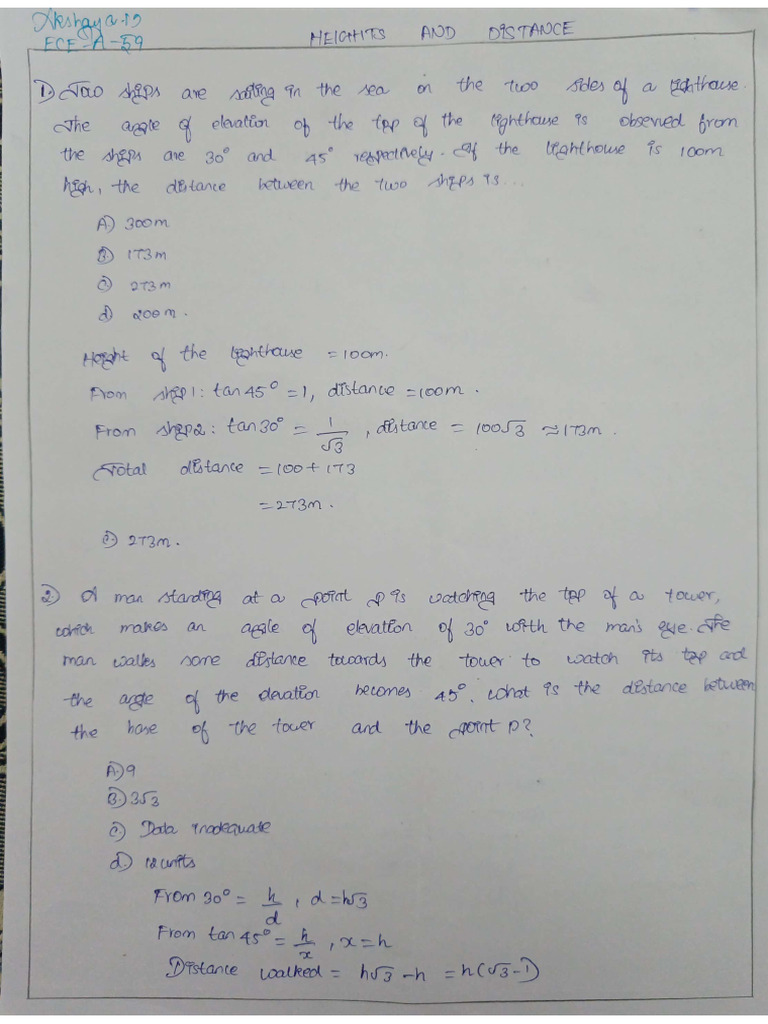 Akshaya.D
ECE-A-59
HEIGHTS AND DISTANCE
1) Two ships are sailing in the sea on the two sides of a lighthouse.
The angle of elevation of the top of the lighthouse is observed from
the ships are 30° and 45° respectively. If the lighthouse is 100m
high, the distance between the two ships is...
A) 300m
B) 173m
C) 273m
d) 200m.
Height of the lighthouse = 100m.
From ship1: tan45° = 1, distance = 100m.
From ship2: tan30° = 1/√3, distance = 100√3 ≈ 173m.
Total distance = 100 + 173
= 273m.
C) 273m.
2) A man standing at a point P is watching the top of a tower,
which makes an angle of elevation of 30° with the man's eye. The
man walks some distance towards the tower to watch its top and
the angle of the elevation becomes 45°. What is the distance between
the base of the tower and the point P?
A) 9
B) 3√3
C) Data inadequate
d) 12 units
From 30° = h/d, d = h√3
From tan45° = h/x, x = h
Distance walked = h√3 - h = h(√3-1)